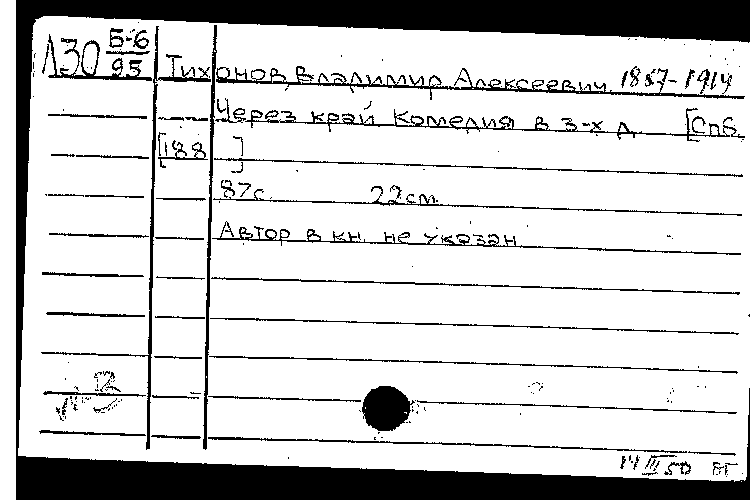 Л30 Б-6
95
Тихонов, Владимир Алексеевич 1857-1914
Через край Комедия в 3-х д. [Спб.
[188 ]
87с. 22см.
Автор в кн. не указан
14 III 50